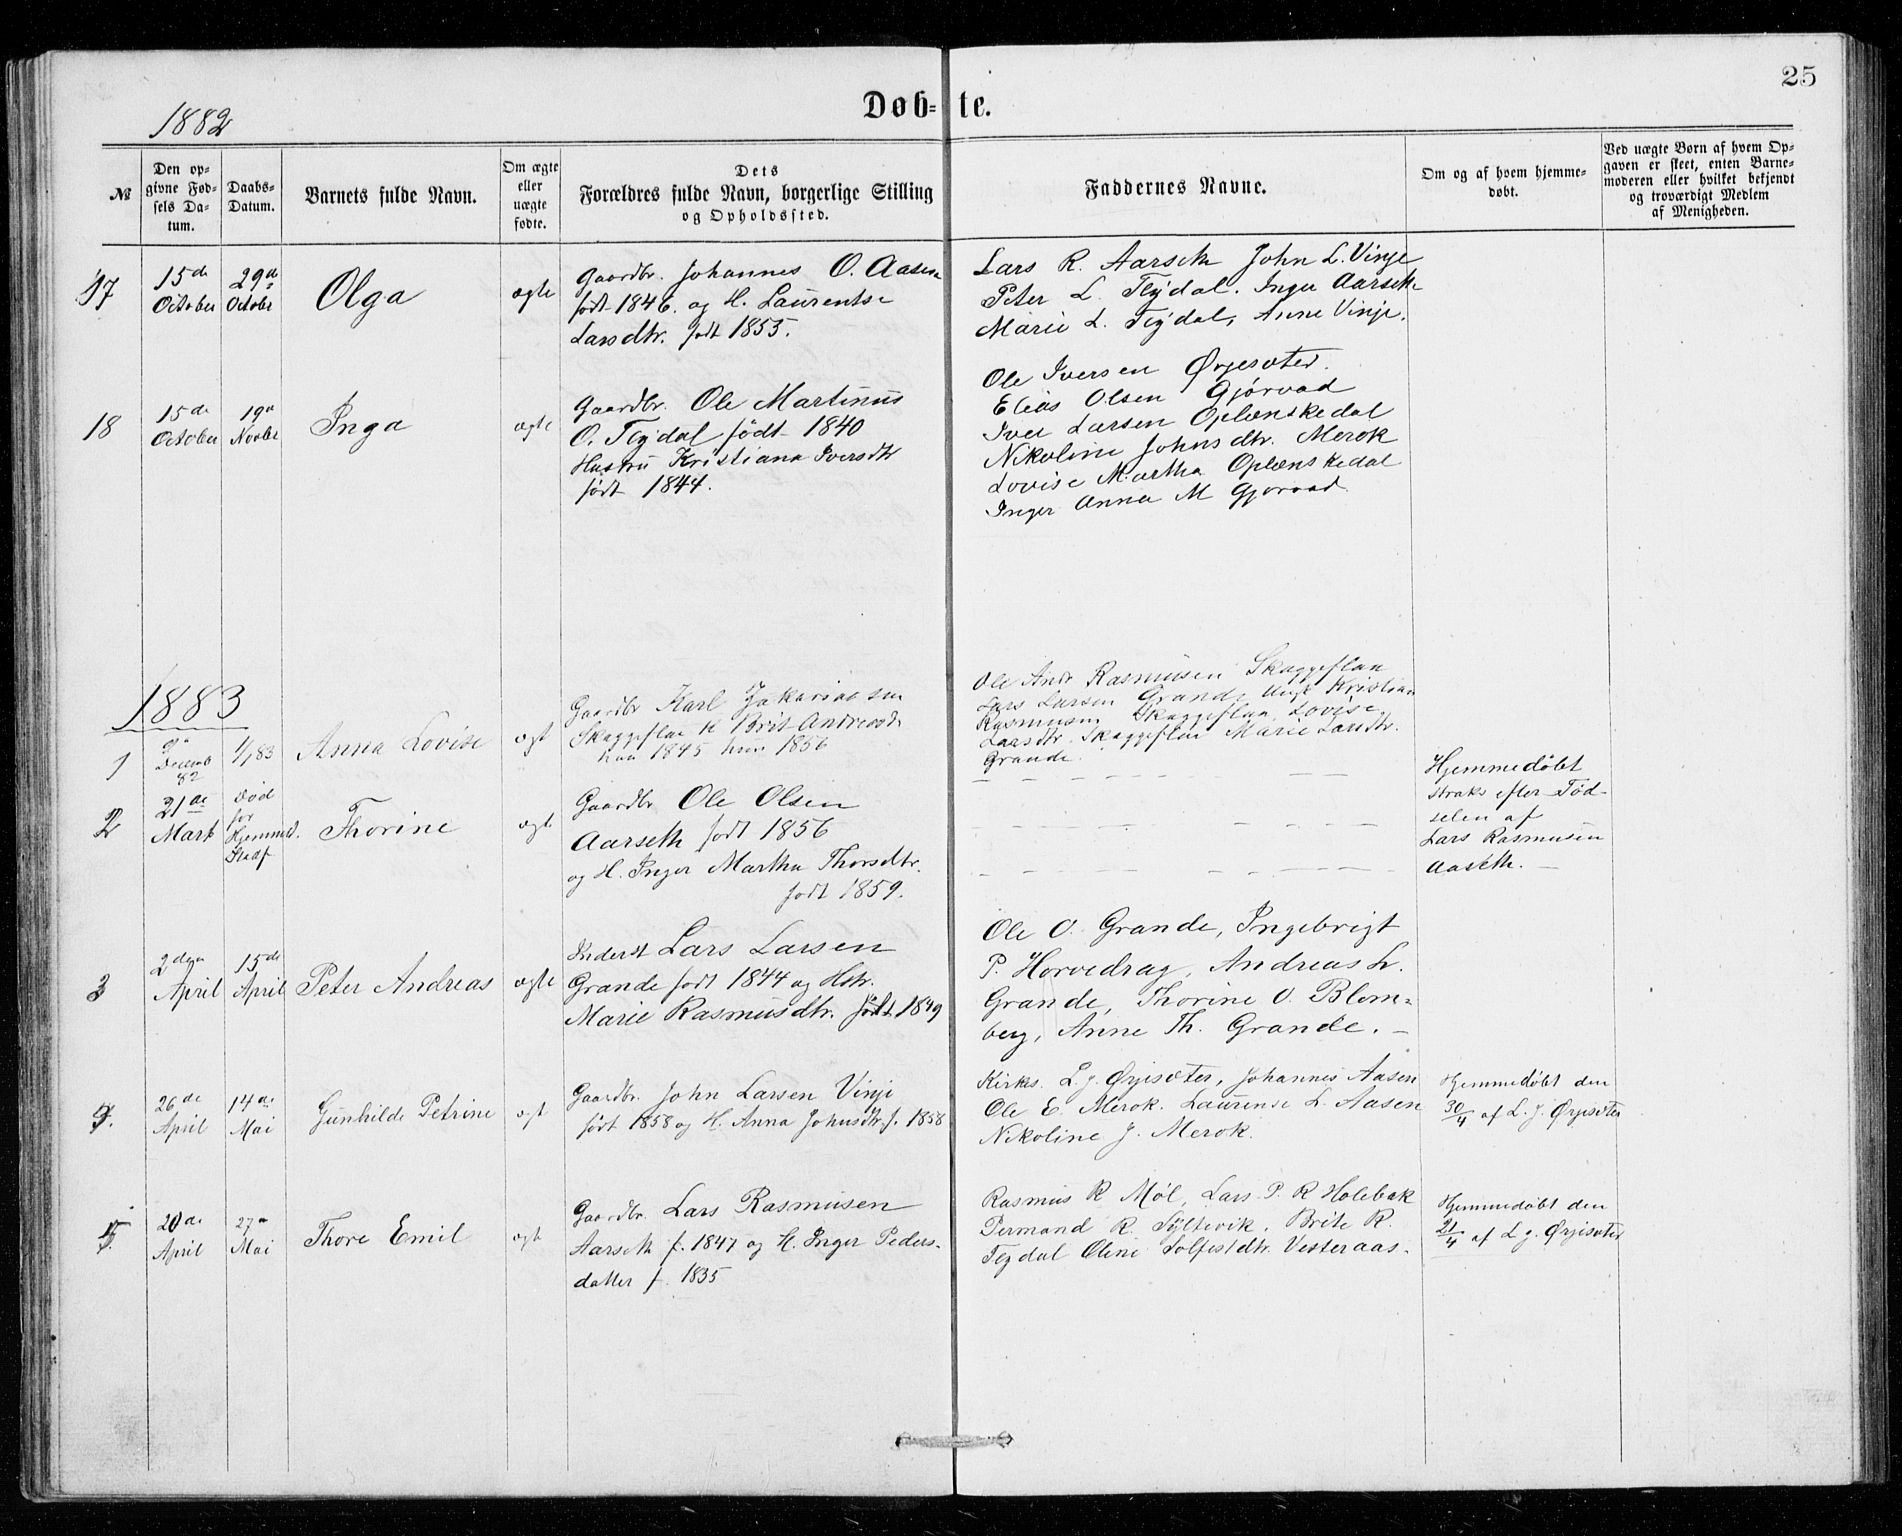 25
1882
Døb- te.
№
Den op-
givne Fød-
sels Da-
tum.
Daabs-
Datum.
Barnets fulde Navn.
Om ægte
eller
uægte
fødte.
Dets
Forældres fulde Navn, borgerlige Stilling
og Opholdssted.
Faddernes Navne.
Om og af hvem hjemme-
døbt.
Ved uægte Børn af hvem Op-
gaven er skeet, enten Barne-
moderen eller hvilket bekjendt
og troværdigt Medlem
af Menigheden.
17
15de
October
29de
Octobr
Olga
ægte
Gaardbr. Johannes O. Aasen
født 1846. og H. Laurentse
Larsdtr. født 1855.
Lars R. Aarseth John L. Vinje
Peter L. Flydal. Inger Aarseth
Marie L. Flydal, Anne Vinje.
18
15de
October
19de
Novbr
Inga
ægte
Gaardbr. Ole Martinus
O. Flydal født 1840
Hustru Kristiana Iversdtr
født 1844.
Ole Iversen Ørjesæter.
Elias Olsen Gjørvad
Iver Larsen Oplænskedal
Nikoline Johnsdtr. Merok
Lovise Martha Oplænskedal
Inger Anna M Gjørvad
1883
1
9de
Decemb
82
1/1 83
Anna Lovise
ægt
Gaardbr Karl Zakariassen
Skaggeflaa H Brit Andreasd.
han 1845 hun 1856
Ole Andr Rasmusen Skaggeflaa
Lars Larsen Grande Ungk Kristian
Rasmusen Skaggeflaa, Lovise
Larsdtr. Skaggeflaa Marie Larsdtr.
Grande.
2
21de
Marts
Død
før
Hjemmed.
Stadf
Thorine
ægt
Gaardbr Ole Olsen
Aarseth født 1856
og H. Inger Martha Thorsdtr.
født 1859.
Hjemmedøbt
straks efter Fød-
selen af
Lars Rasmusen
Aaseth.
3
2den
April
15de
April
Peter Andreas
ægte
Inderst Lars Larsen
Grande født 1844 og Hstr.
Marie Rasmusdtr. født 1849
Ole O. Grande, Ingebrigt
P. Horvedrag, Andreas L.
Grande, Thorine O. Blom-
berg, Anne Th. Grande.
4.
26de
April
14de
Mai
Gunhilde Petrine
ægt
Gaardbr. John Larsen Vinje
født 1858 og H. Anna Johnsdtr f. 1858
Kirkes. L. J. Ørjesæter, Johannes Aasen
Ole E. Merok. Laurense L. Aasen
Nikoline J. Merok.
Hjemmedøbt den
30/4 af L. J. Ørjesæter
5
20de
April
27de
Mai
Thore Emil
ægt
Gaardbr. Lars Rasmusen
Aarseth f. 1847 og H. Inger Peders-
datter f. 1835
Rasmus R Møl, Lars P. R Holebak
Permand R. Syltevik, Brite R.
Flydal Oline Solfestdtr. Vesteraas.
Hjemmedøbt den
21/4 af L J. Ørjesæter